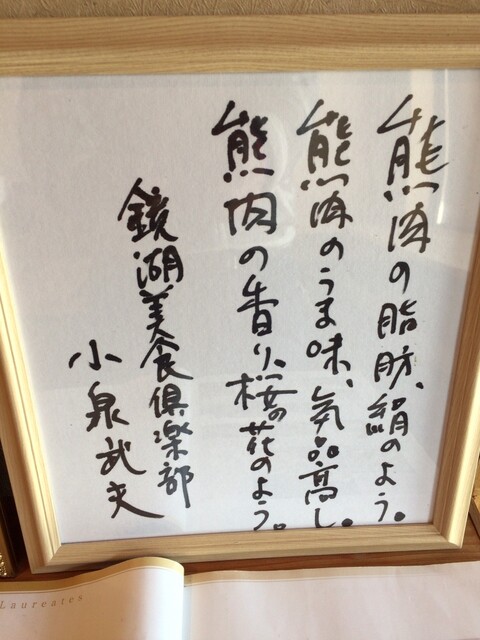 熊肉の脂肪、絹のよう。
熊肉のうま味、気品高し。
熊肉の香り、桜の花のよう。
鏡湖美食倶楽部
小泉武夫
Laureates